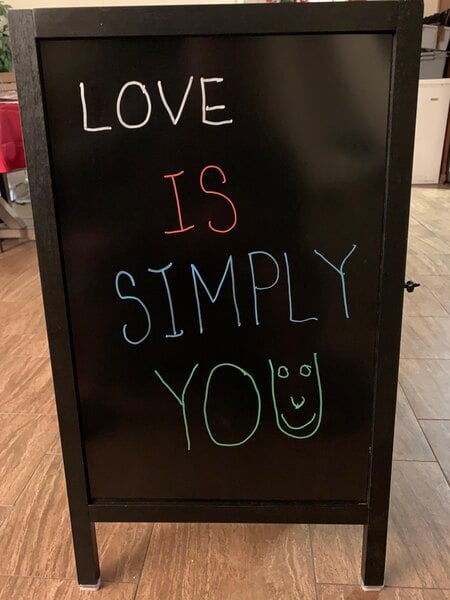 LOVE
IS
SIMPLY
YOU